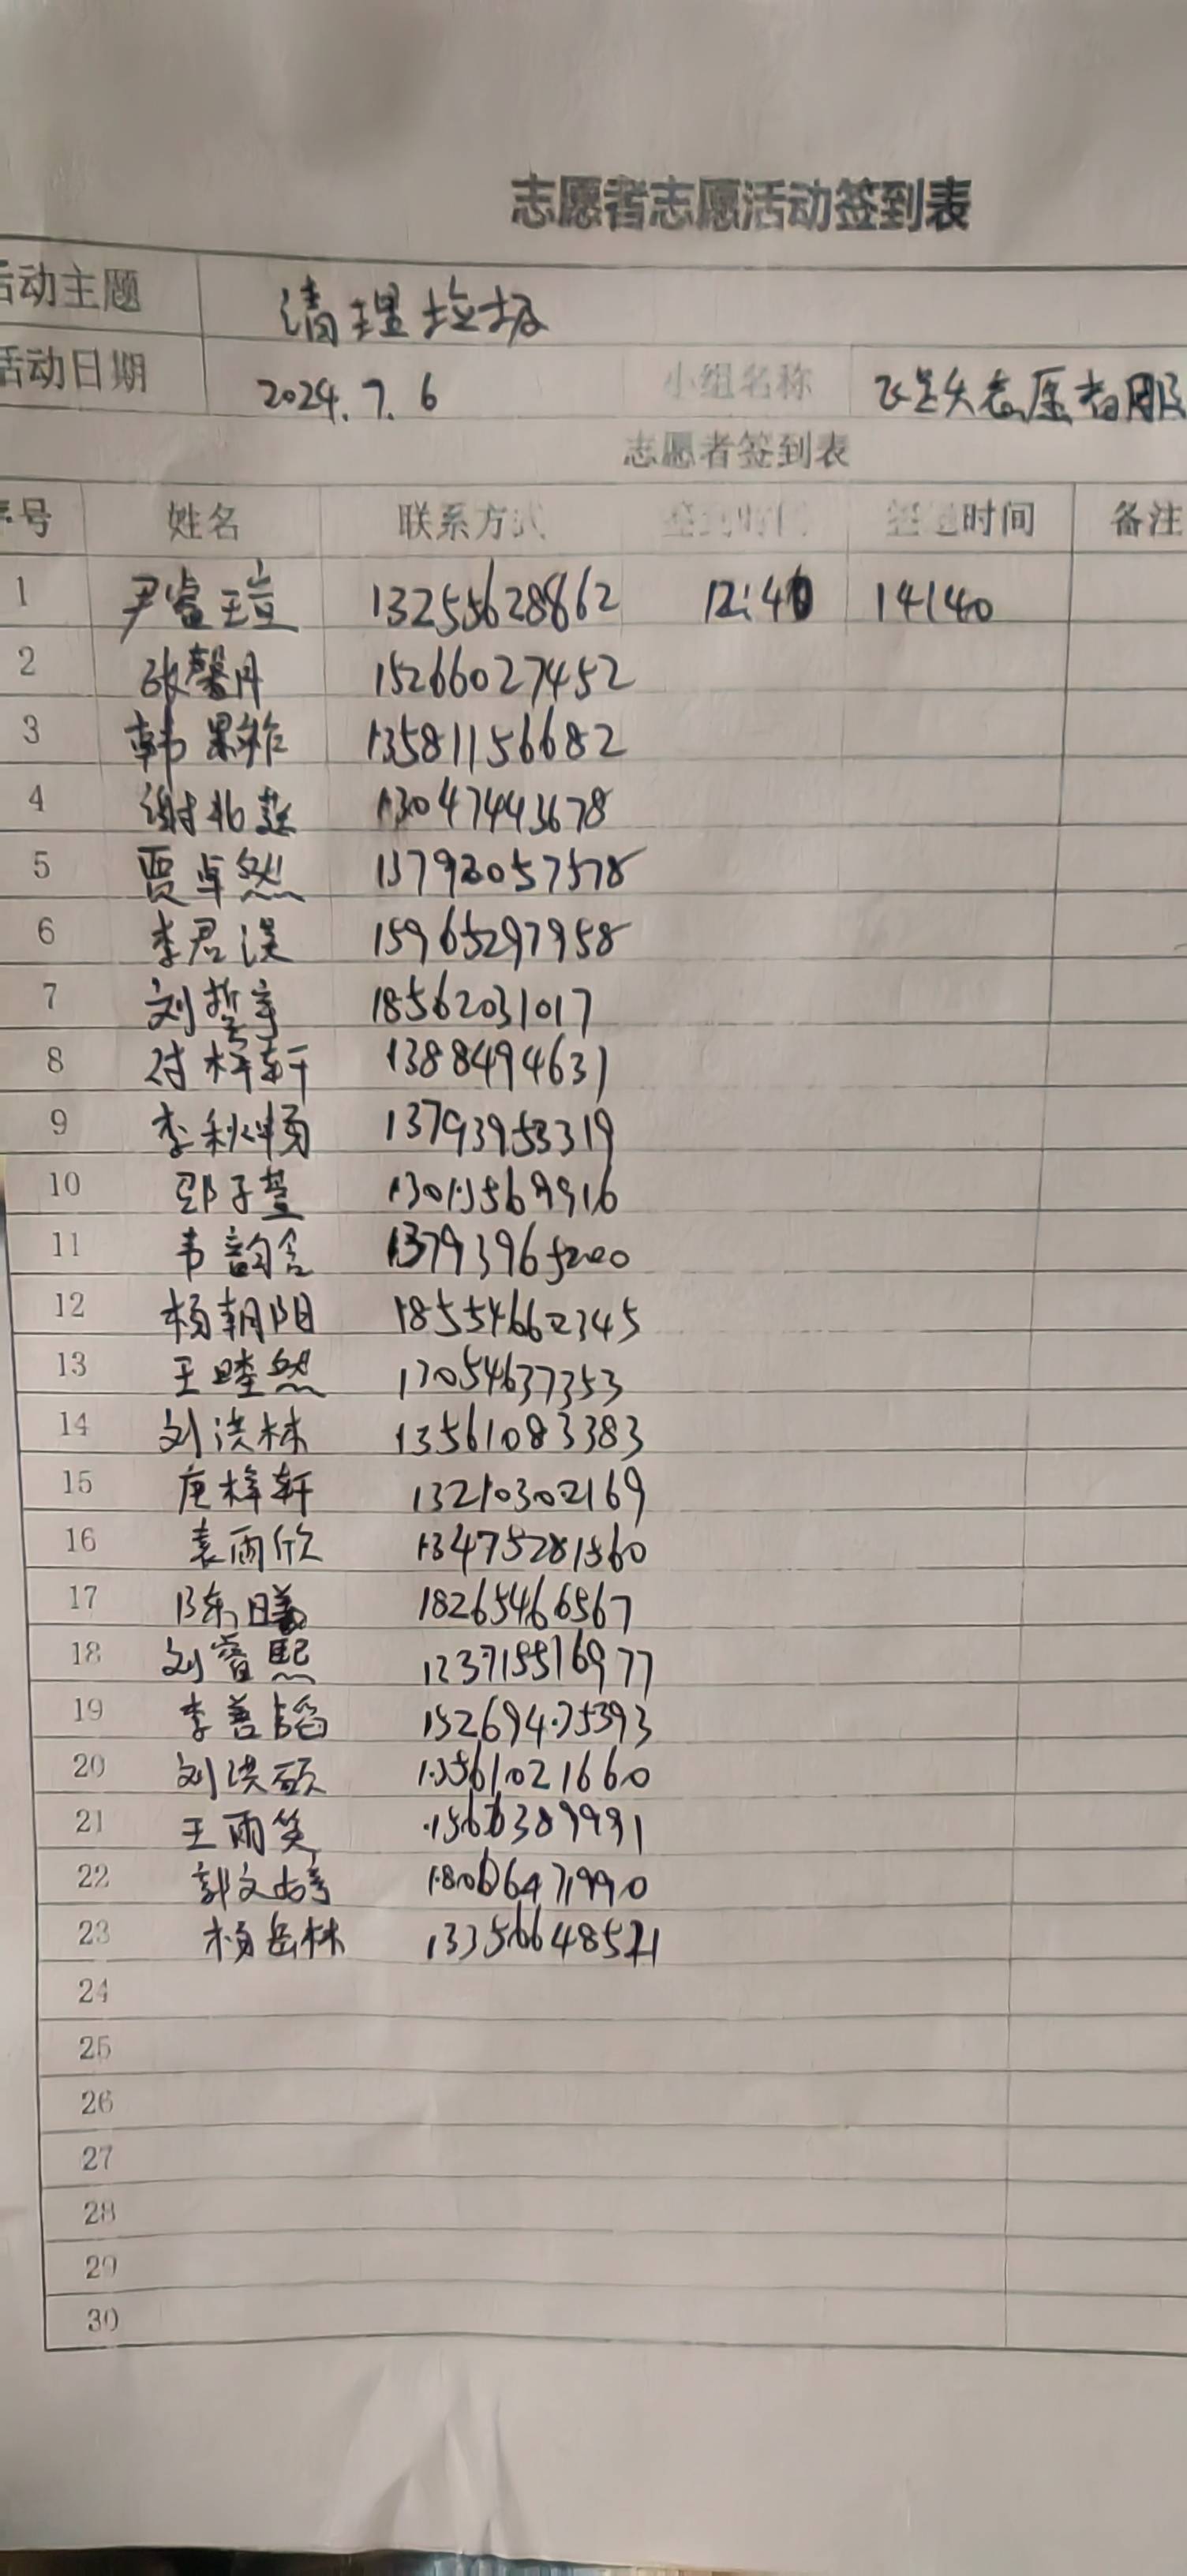 志愿者志愿活动签到表
活动主题 清理垃圾
活动日期 2024.7.6 小组名称 志愿者服
志愿者签到表
序号 姓名 联系方式 签到时间 签退时间 备注
1 尹睿瑄 13255628862 12:40 14:40
2 张馨月 15266027452
3 韩果裕 13581156682
4 谢兆蕊 13047443678
5 贾卓然 13793057578
6 李君溟 15965297958
7 刘哲宇 18562031017
8 付梓轩 1388494631
9 李秋畅 13793953319
10 邵子萱 13013569916
11 韦韵含 13793965200
12 杨朝阳 18554662345
13 王睦然 17054637353
14 刘洪林 13561083383
15 庞梓轩 13210302169
16 袁雨欣 13475281560
17 陈曦 18265466567
18 刘睿熙 123715516977
19 李善韬 15269475393
20 刘洪硕 13561021660
21 王雨笑 1566389991
22 郭文婷 18006471990
23 杨岳林 13356648521
24
25
26
27
28
29
30